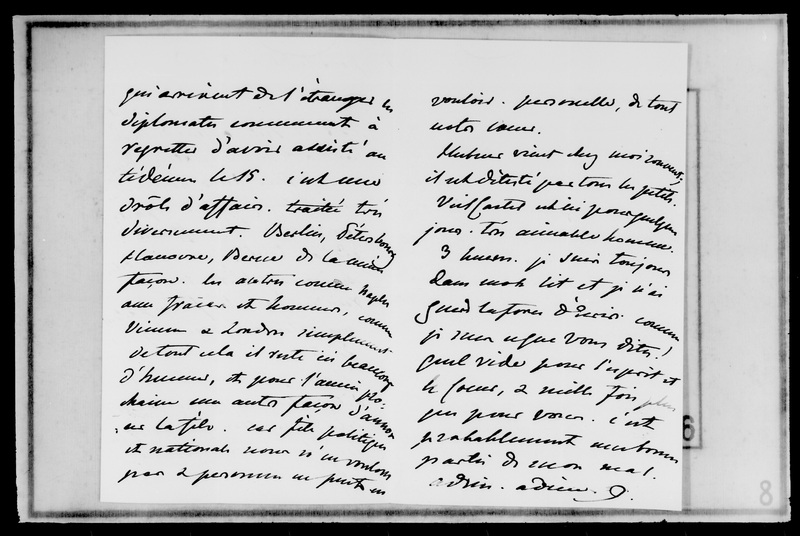 qui arrivent de l'étranger les
diplomates commencent à
regretter d'avoir assisté au
tédéum le 15. c'est une
drôle d'affaire. traité très
diversement. Berlin, Pétersbourg
Hanovre, Berne de la même
façon. les autres comme Naples
avec grace et honneur, comme
Vienne & Londres simplement
de tout cela il reste ici beaucoup
d'humeur, et pour l'année pro-
chaine une autre façon d'annon-
cer la fête. car fête politique
et nationale nous n'en voulons
pas & personne ne peut en
vouloir. personelle, de tout
notre coeur.
Hubner vient chez moi souvent,
il est détesté par tous les petits.
est ici pour quelques
jours. très aimable homme.
3 heures. je suis toujours
dans mon lit et je n'ai
guère la force d'écrire. comme
je sens ce que vous dites!
quel vide pour l'esprit et
le coeur, & mille fois plus
que pour vous. c'est
probablement une bonne
partie de mon mal.
adieu. adieu.
6
8